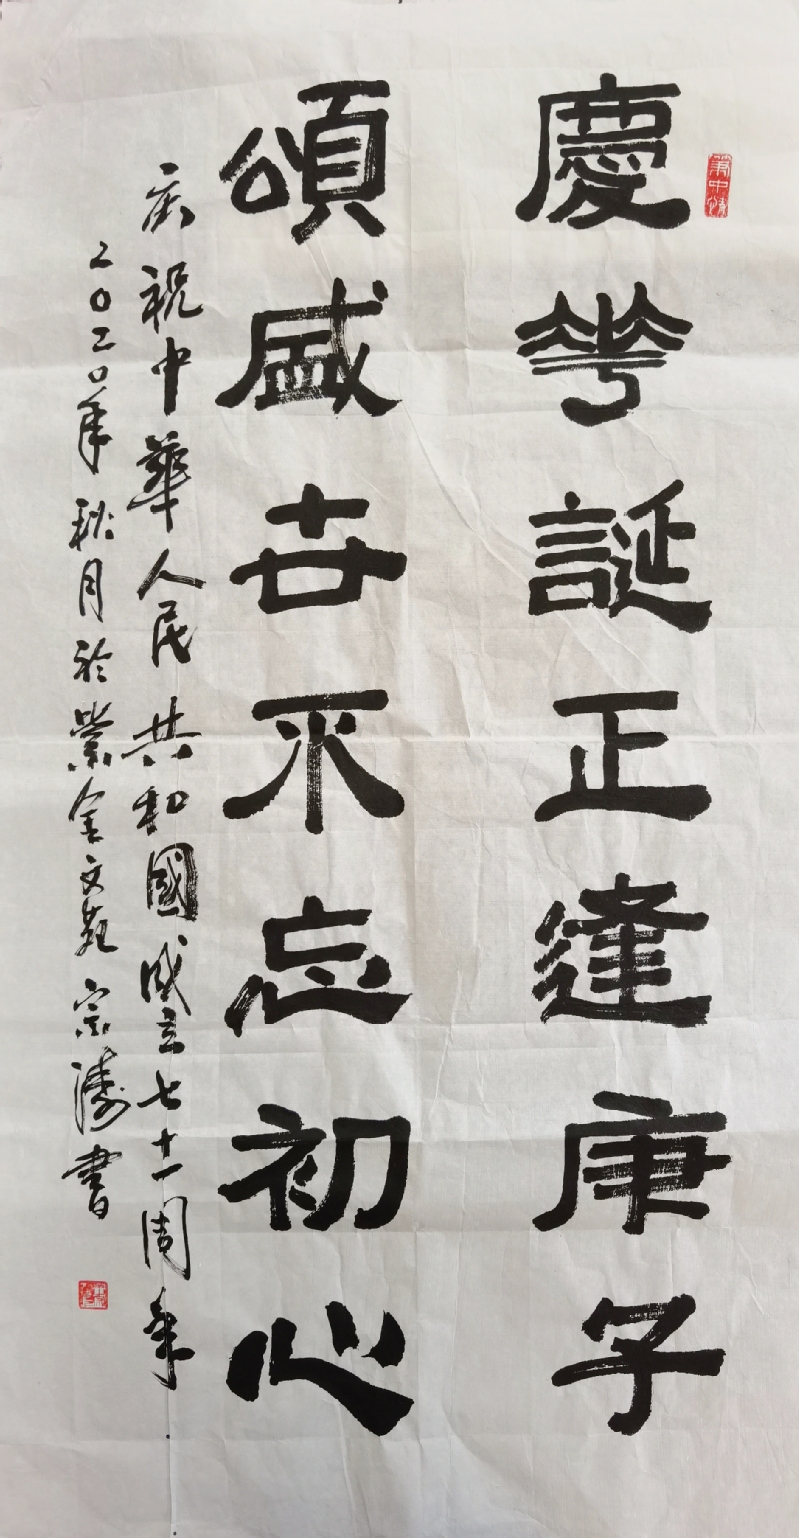 慶華誕正逢庚子
頌盛世不忘初心
庆祝中華人民共和國成立七十一周年
二0二0年秋月於紫金文苑宗濤書